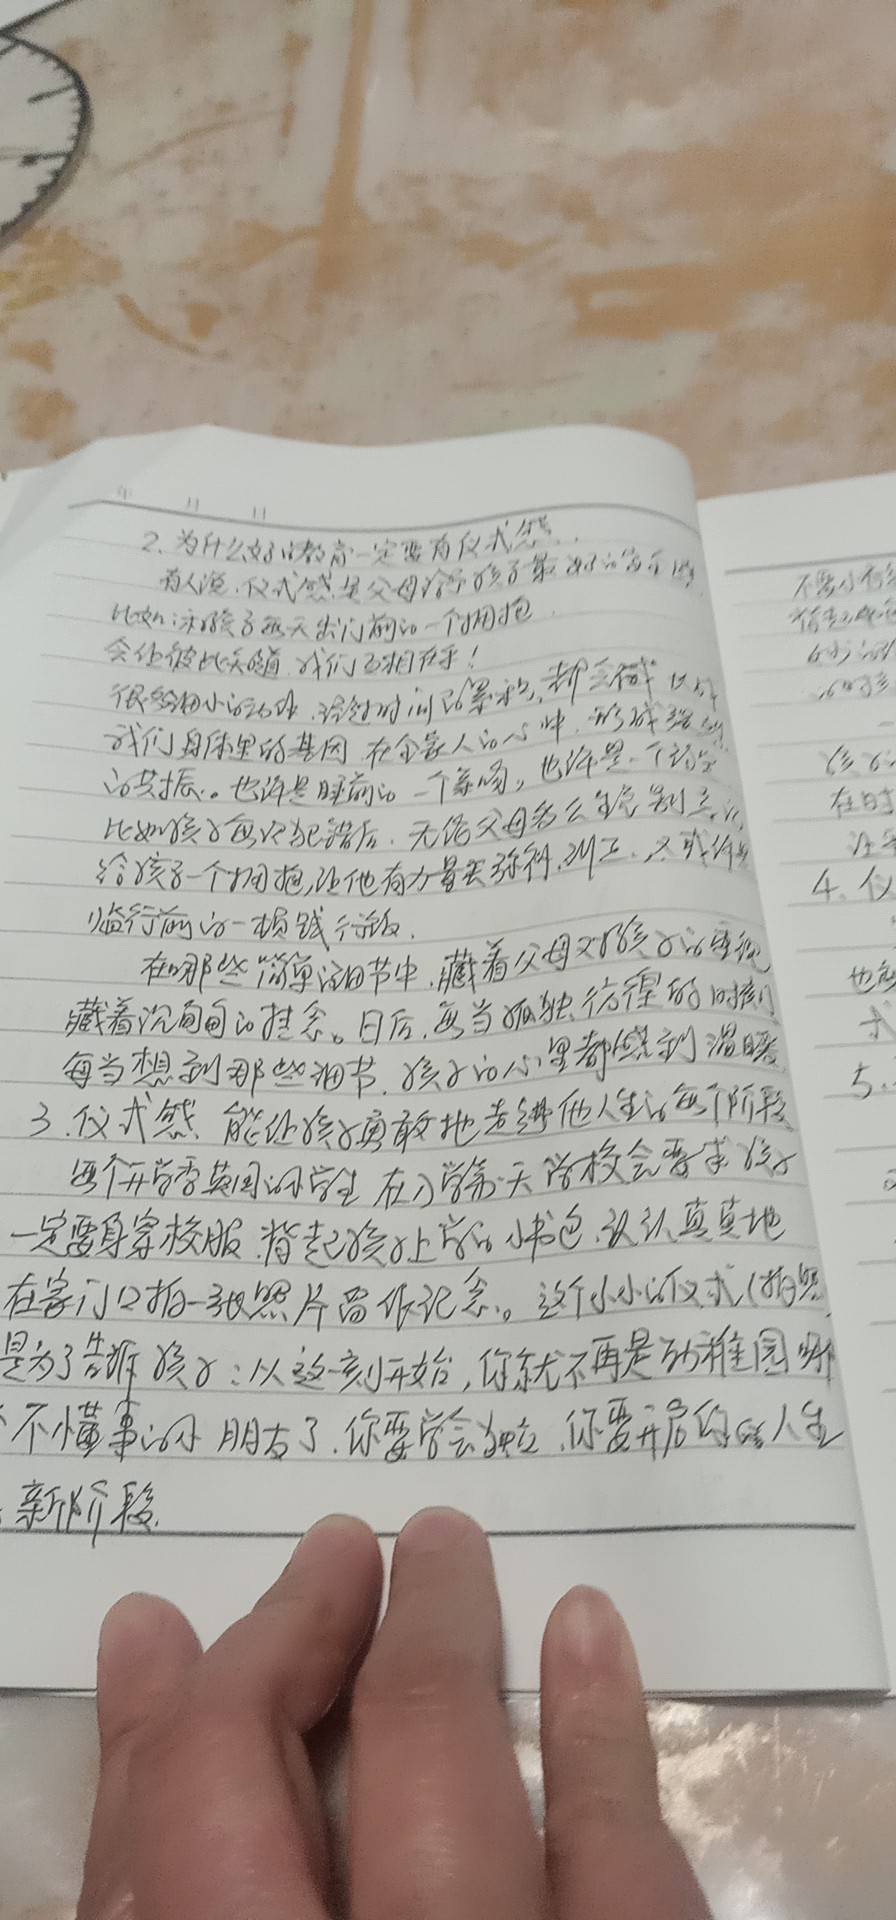 年 月 日
2. 为什么好的教育一定要有仪式感
有人说,仪式感是父母给予孩子最好的
比如:孩子每天出门前的一个拥抱
会让彼此 我们互相在乎!
很多细小的 经过时间的累积,都会
我们身体里的基因 在全家人的心中,形成强烈
的共振。也许是睡前的一个亲吻,也许是一个
比如孩子每次犯错后,无论父母多么生气
给孩子一个拥抱,让他有力量去弥补,纠正,又或许是
临行前的一顿践行饭.
在哪些简单的细节中,藏着父母对孩子的重视
藏着沉甸甸的挂念。日后,每当孤独彷徨的时刻
每当想到那些细节,孩子的心里都感到温暖
3.仪式感 能让孩子勇敢地走进他人生的每个阶段
每个开学季英国的小学生 在入学第一天 学校会要求孩子
一定要身穿校服,背起孩子上学的小书包,认认真真地
在家门口拍一张照片留作记念。这个小小的仪式(拍照
是为了告诉孩子:从这一刻开始,你就不再是幼稚园那
个不懂事的小朋友了,你要学会独立,你要开启你的人生
新阶段.
不需
在时
4. 仪
也
5.